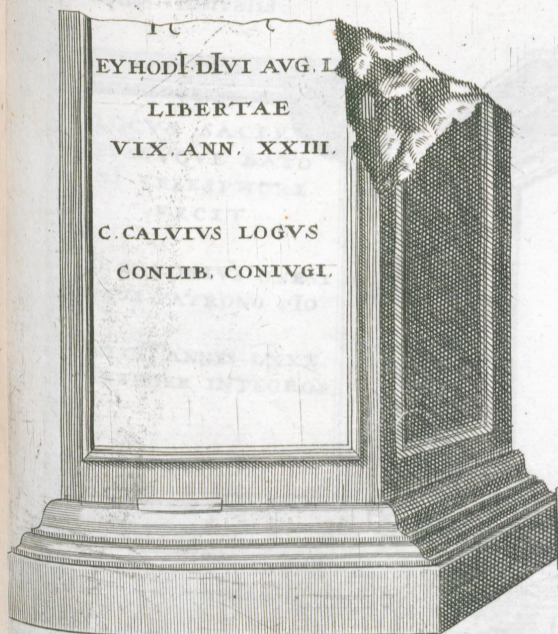 EYHODI DIVI AVG. L
LIBERTAE
VIX ANN. XXIII.
C. CALVIVS LOGVS
CONLIB. CONIVGI.